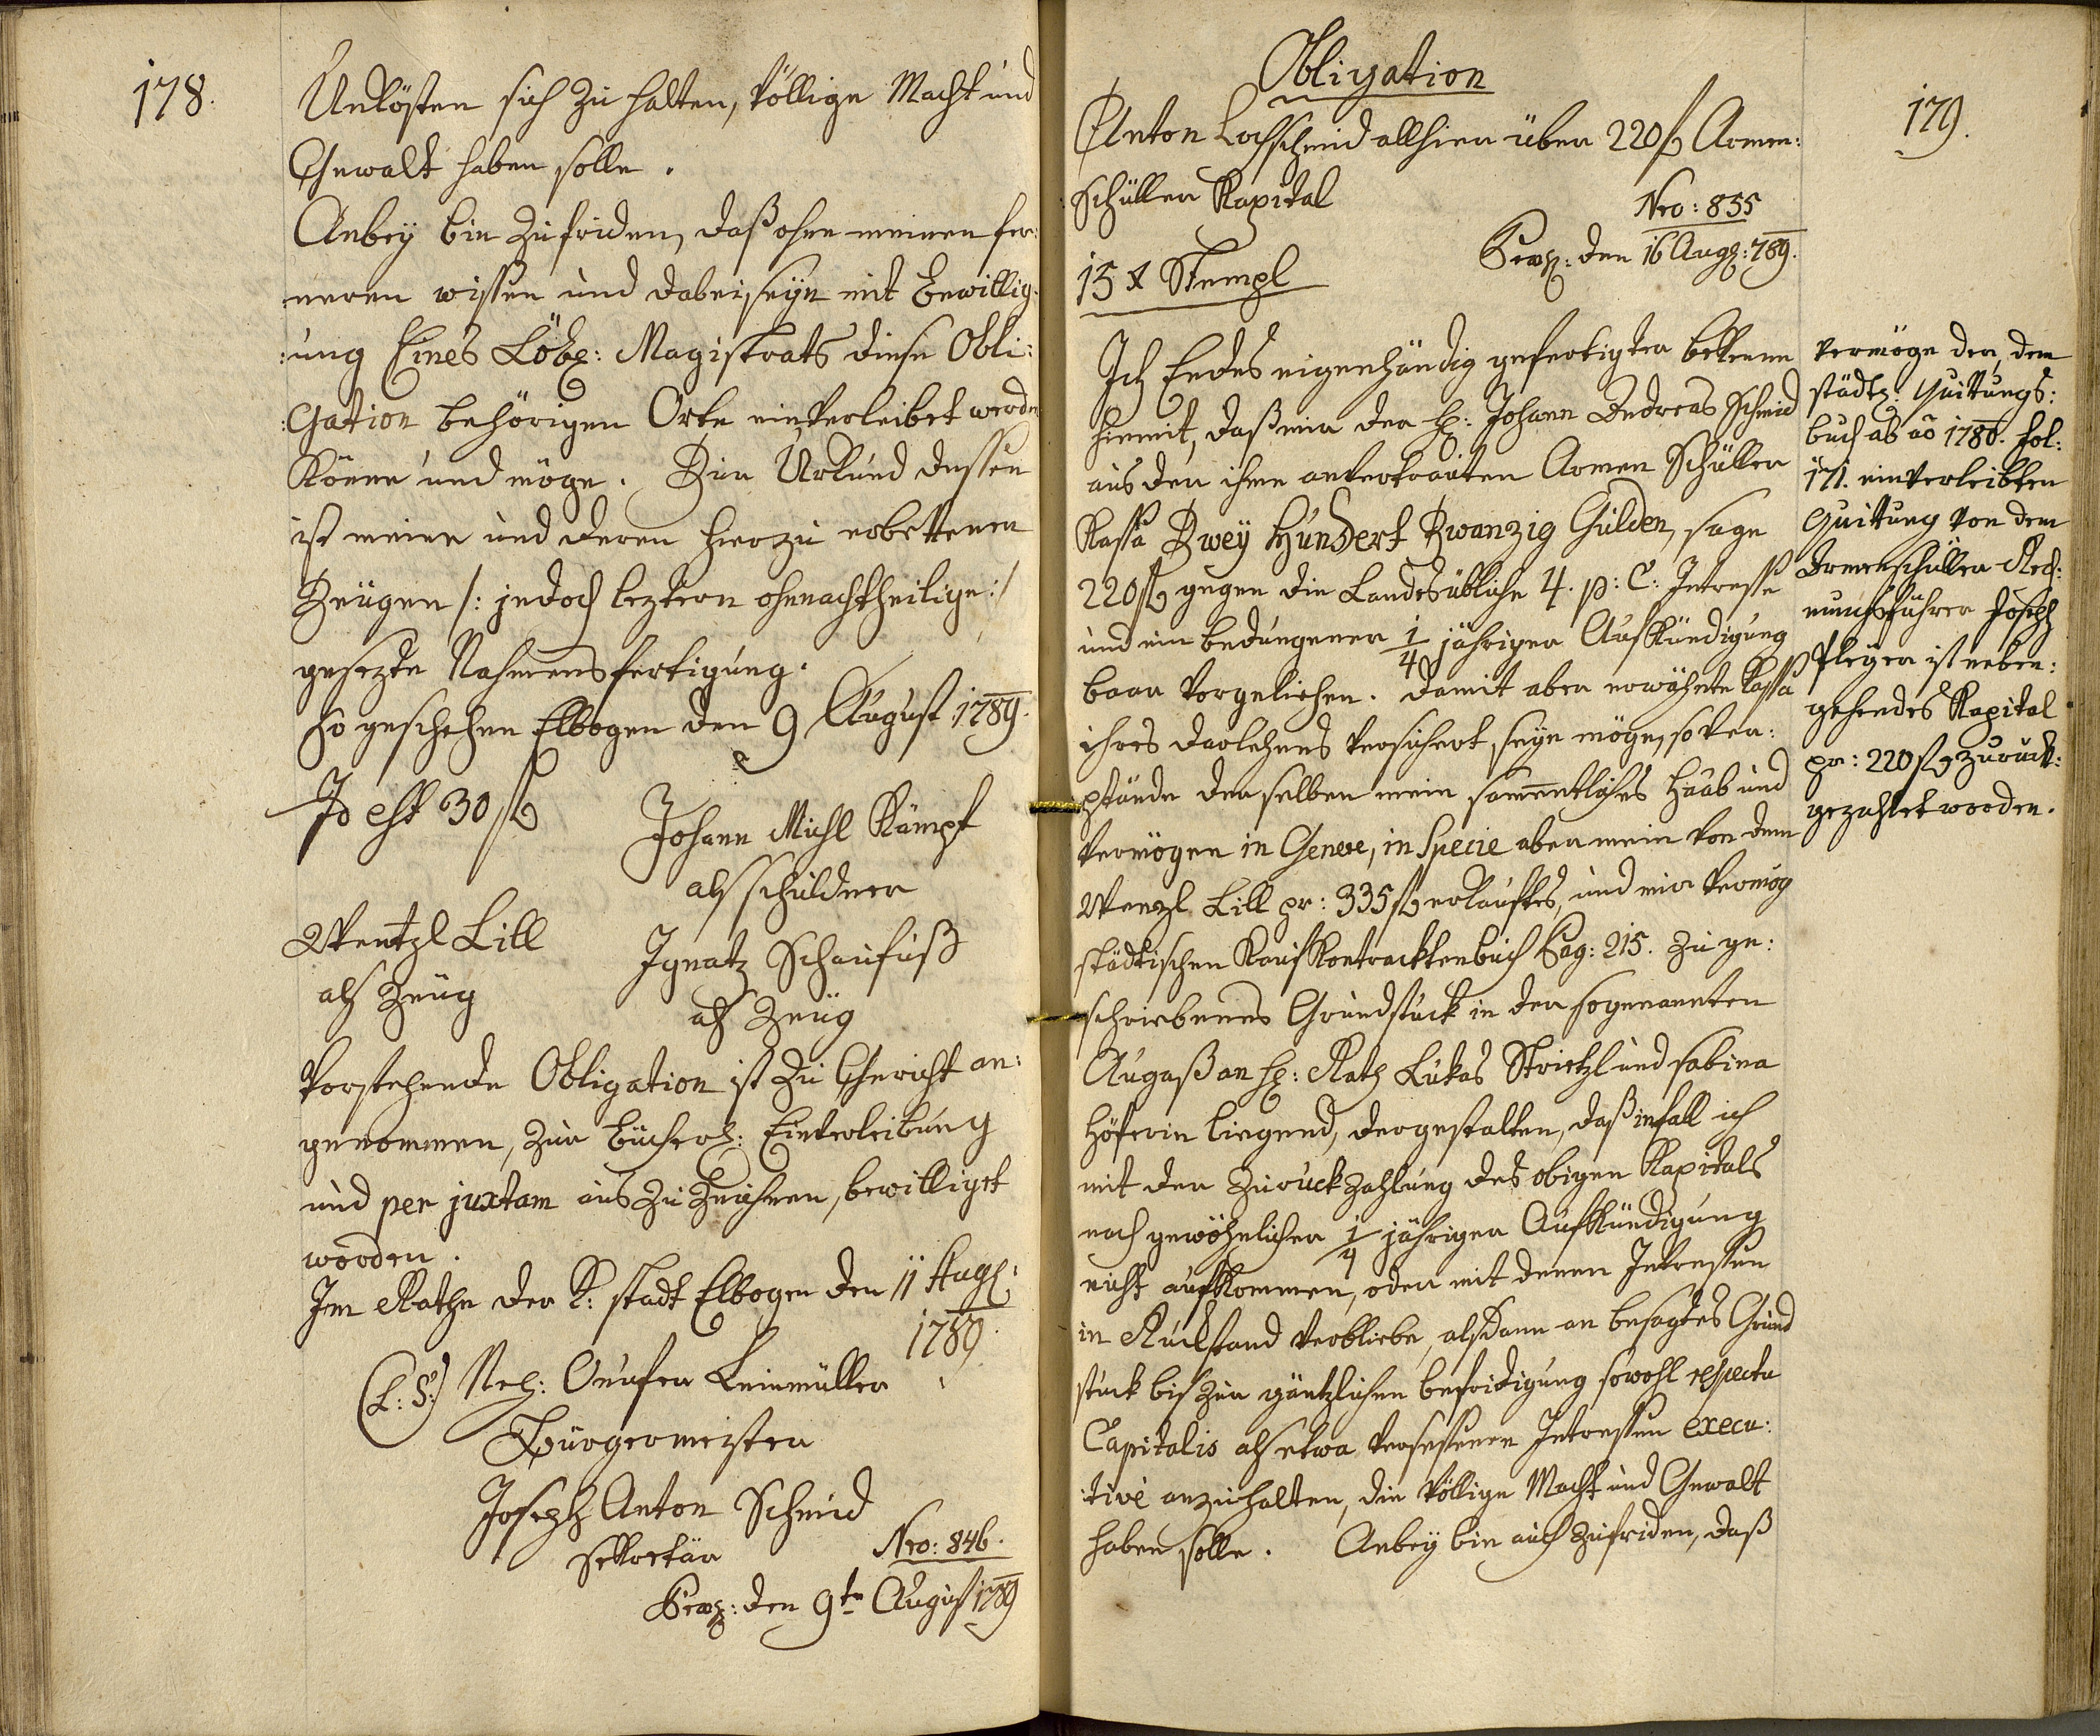 178.
Unkösten sich zu halten, völlige Macht und
Gewalt haben solle.
Anbey bin zufriden, daß ohne meinen fer:
neren wissen und dabeiseyn mit Bewillig:
:ung Eines Löbl: Magistrats diese Obli:
:Gation behörigen Orte einverleibet werden
könne und möge. Zur Urkund dessen
ist meine und deren hierzu erbettenen
Zeugen /: jedoch leztern ohnnachtheilige :/
gesezte Nahmensfertigung.
So geschehen Elbogen den 9 August 1789.
Id est 30 f
Johann Michl Kämpf
als schuldner
Wentzl Lill
als Zeug
Ignatz Schaufuß
als Zeug
Vorstehende Obligation ist zu Gericht an:
genommen, zur bücherl: Einverleibung
und per juxtam auszuzeichnen, bewilliget
worden.
Im Rathe der K: stadt Elbogen den 11 Aug:
1789.
(L: S:) Onufer Leinmüller
Bürgermeister
Joseph Anton Schmid
Sekretär
Nro: 846.
Praes: den 9ten August 1789
179.
Obligation
Anton Lochschmid allhier über 220 f Armen:
:schüller Kapital
Nro: 835
Praes: den 16 Aug: 789.
15 x Stempl
Ich Endes eigenhändig gefertigter bekenne
hiemit, daß mir der H: Johann Andreas Schmid
aus der ihme anvertrauten Armen Schüller
Kassa Zwey Hundert Zwanzig Gulden, sage
220 f gegen die Landesübliche 4. p: C: Intresse
und ein bedungener 1/4 jähriger Aufkündigung
baar vorgeliehen. Damit aber erwähnte Kassa
ihres darlehens versichert seyn möge, so ver:
pfände derselben mein sammentliches Haab und
Vermögen in Genere, in Specie aber mein von dem
Wenzl Lill pr: 335 f erkauftes, und mir vermög
städtischen Kaufkontracktenbuch Pag: 215. zu ge:
schriebenes Grundstück in der sogenannten
Augaß an H: Rath Lukas Strietzl und Sabina
Höferin liegend, dergestalten, daß infall ich
mit der Zurückzahlung des obigen Kapitals
nach gewöhnlicher 1/4 jähriger Aufkündigung
nicht aufkommen, oder mit denen Intressen
in Rückstand verbliebe, alsdann an besagtes Grund
stück bis zur gäntzlichen befridigung sowohl respectu
Capitalis als etwa versessenen Intressen execu:
:tive anzuhalten, die völlige Macht und Gewalt
haben solle. Anbey bin auch zufriden, daß
Vermöge der, dem
städtl: Quittungs:
buch ab ao 1780. fol:
171. einverleibten
Quittung von dem
Armenschüller Rech:
nungsführer Joseph
Pleyer ist neben:
gehendes Kapital
pr: 220 f zurück:
gezahlet worden.